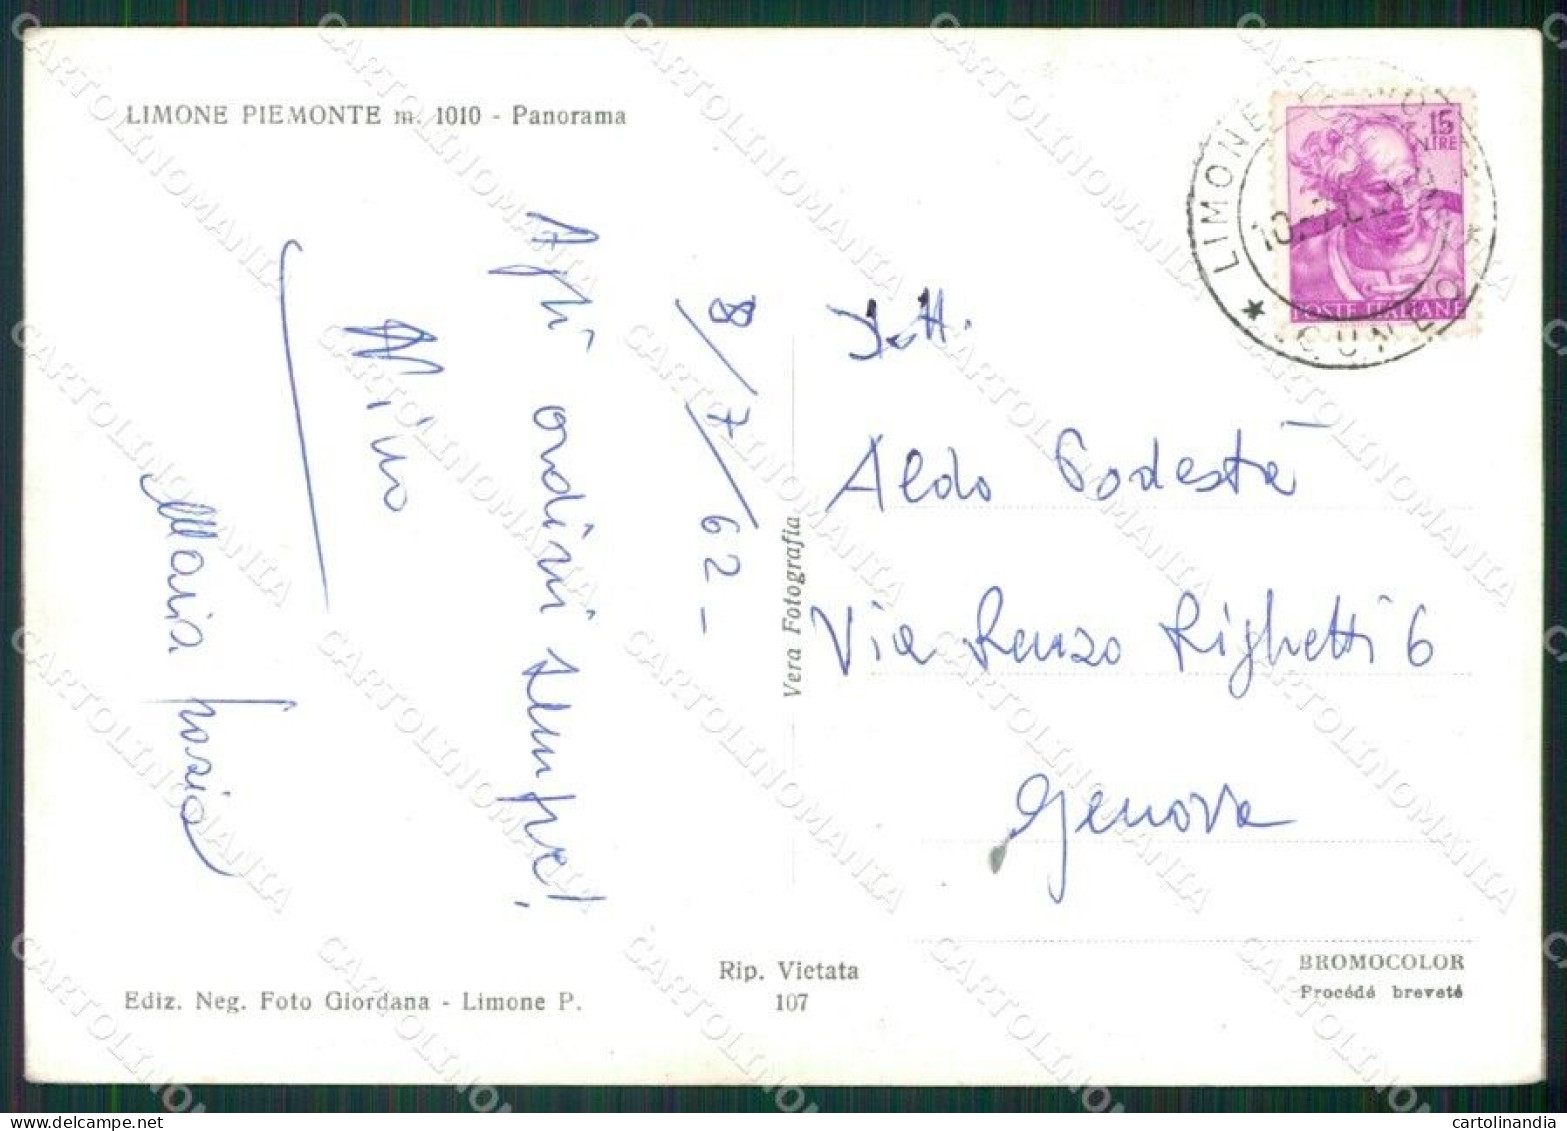 LIMONE PIEMONTE m. 1010 - Panorama
15
LIRE
POSTE ITALIANE
LIMONE PIEMONTE
★ CUNEO ★
8/7/62 -
Agli ordini sempre!
Mino
Maria Grazia
Vera Fotografia
Dott.
Aldo Podestà
Via Renzo Righetti 6
Genova
Rip. Vietata
107
Ediz. Neg. Foto Giordana - Limone P.
BROMOCOLOR
Procédé breveté
CARTOLINOMANIA
cartolinandia